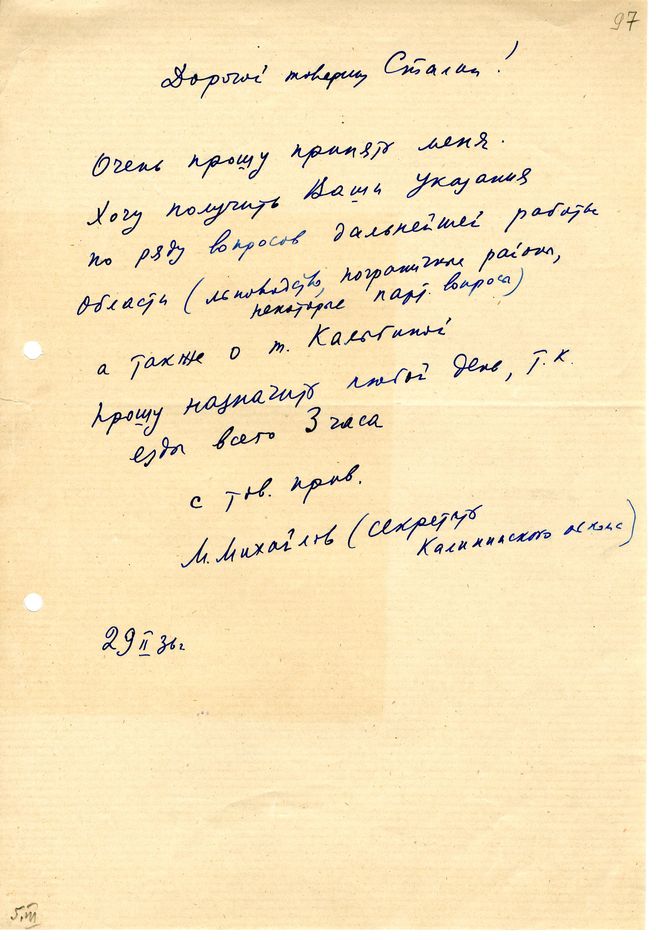 97
Дорогой товарищ Сталин!
Очень прошу принять меня.
Хочу получить Ваши указания
по ряду вопросов дальнейшей работы
области (льноводство, пограничные районы,
некоторые парт. вопросы)
а также о т. Калыгиной
Прошу назначить любой день, т.к.
езды всего 3 часа
с тов. прив.
М. Михайлов (секретарь
Калининского обкома)
29 II 36 г.
5.III